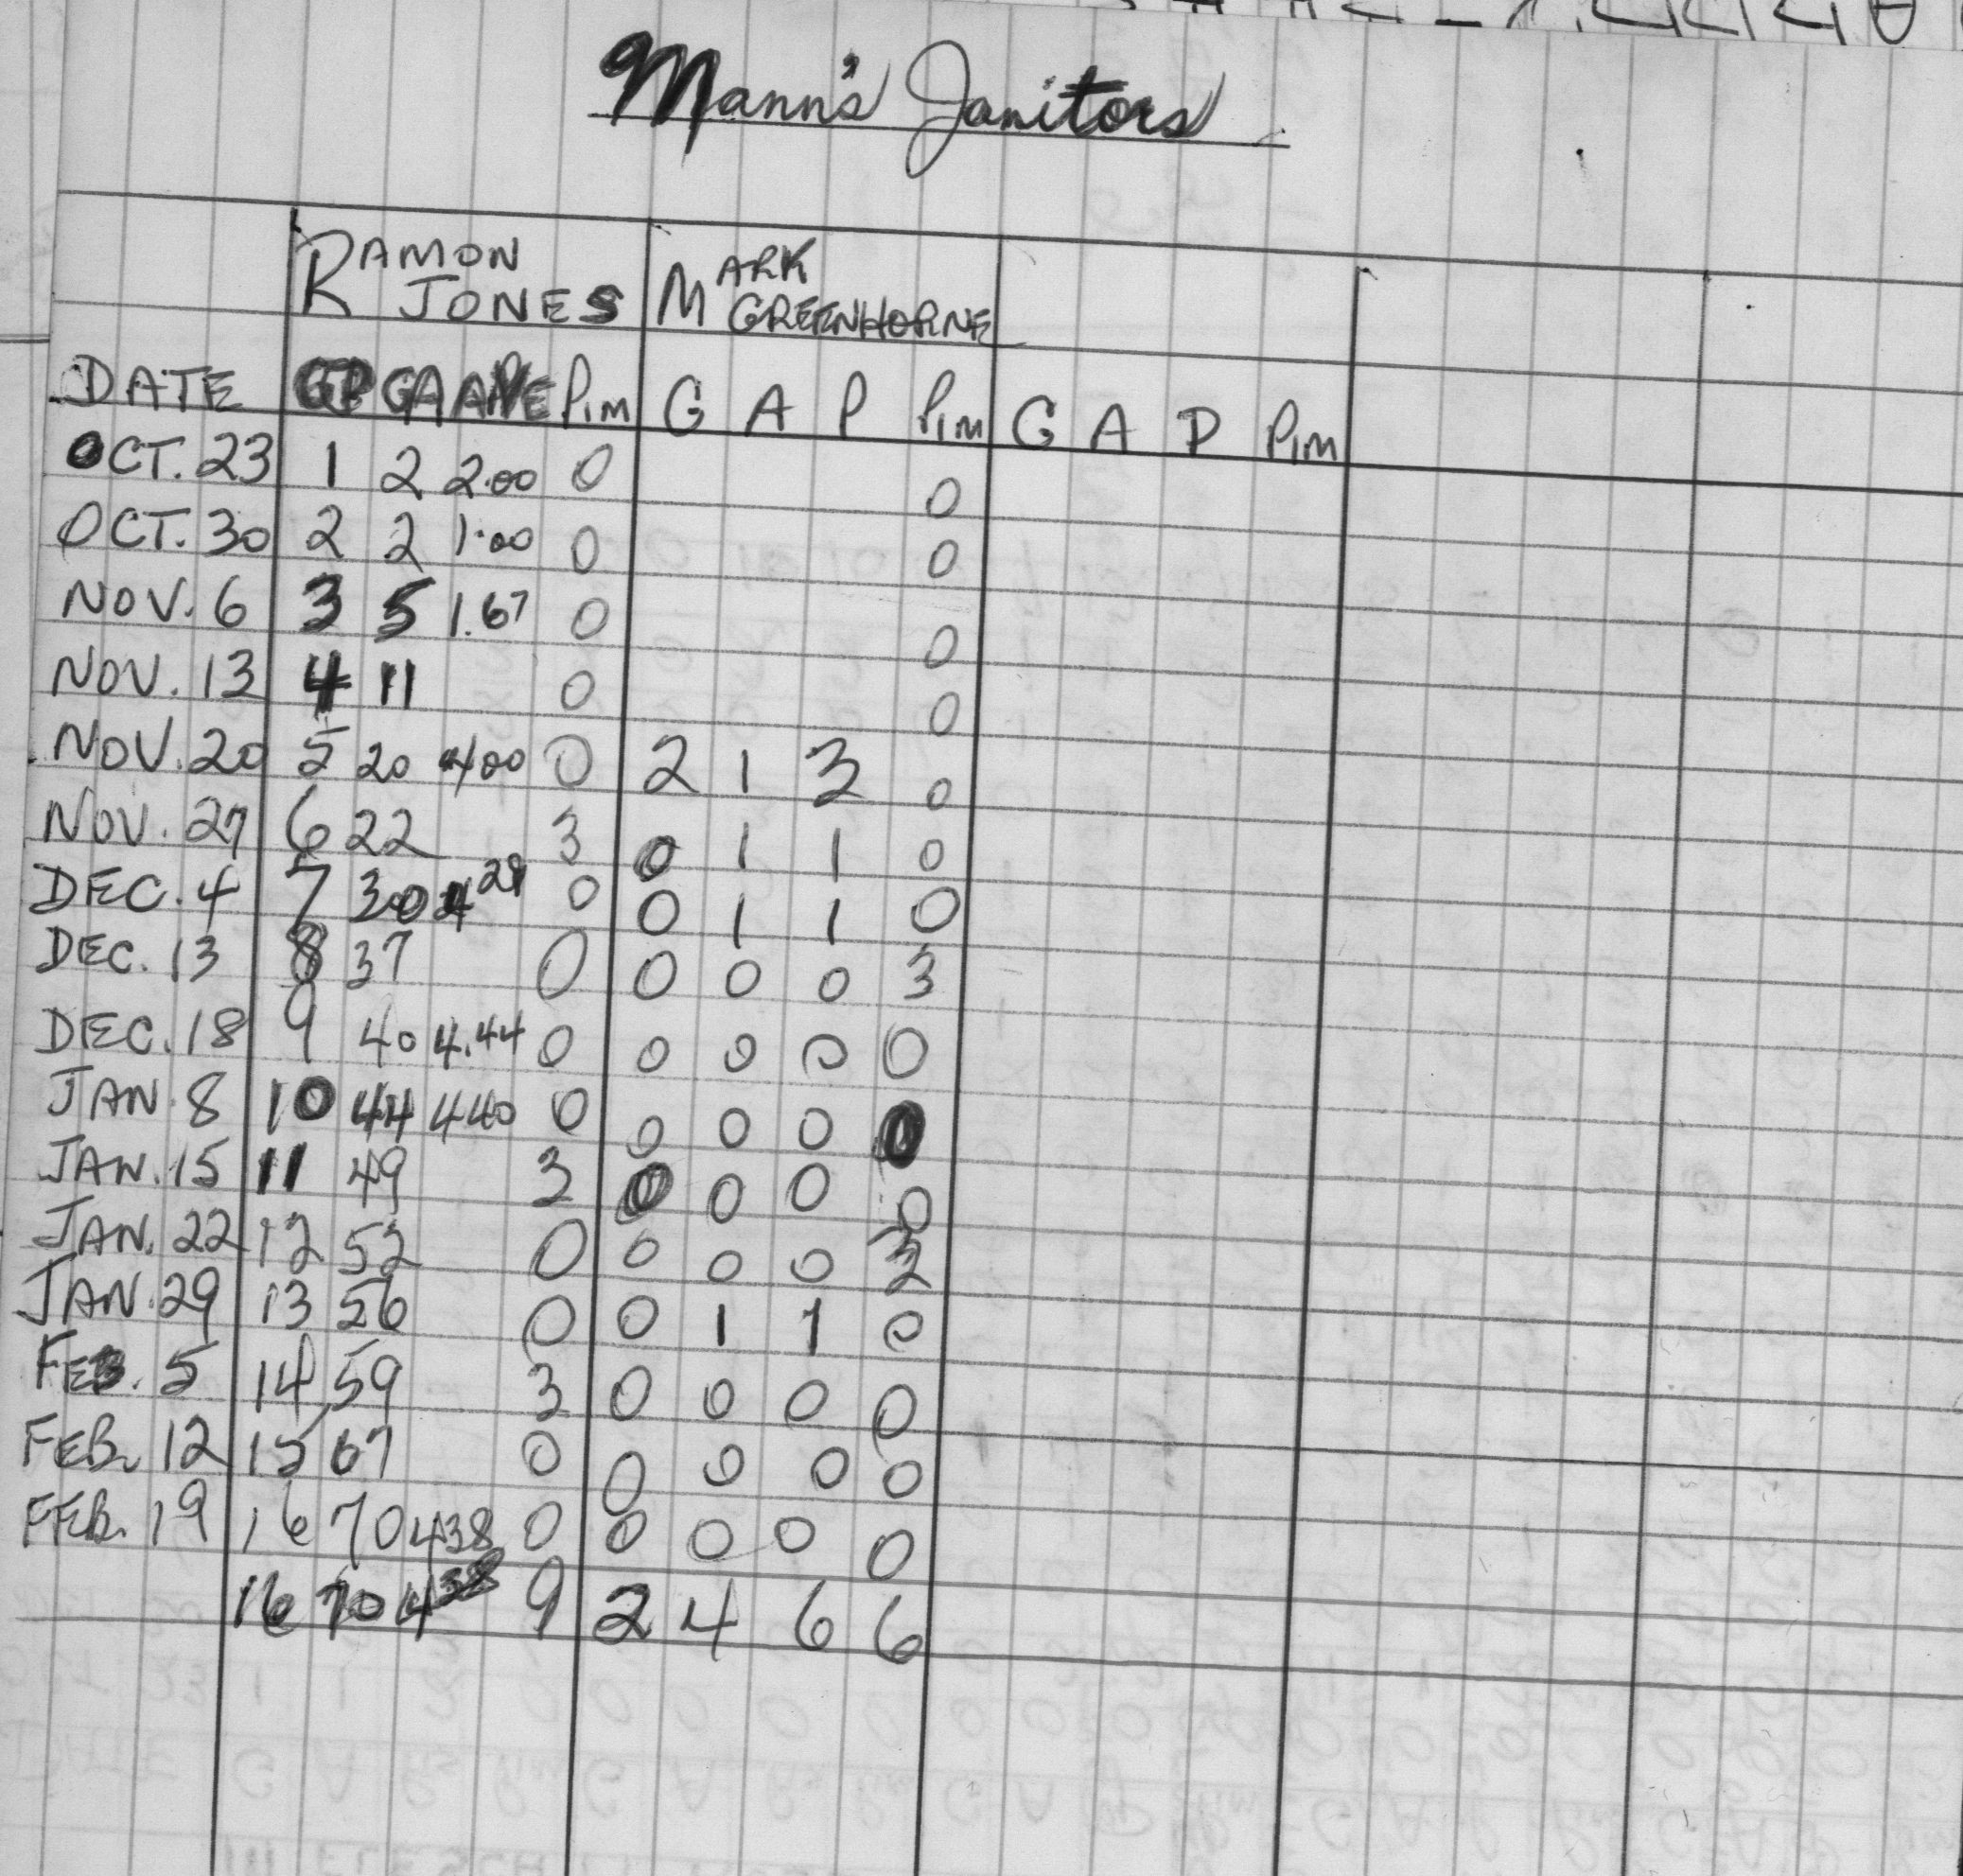 Mann's Janitors
RAMON JONES MARK GREENHORNE
DATE GP GA AVE Pim G A P Pim G A P Pim
OCT. 23 1 2 2.00 0 0
OCT. 30 2 2 1.00 0 0
NOV. 6 3 5 1.67 0 0
NOV. 13 4 11 0 0
NOV. 20 5 20 4.00 0 2 1 3 0
NOV. 27 6 22 3 0 1 1 0
DEC. 4 7 30 4.29 0 0 1 1 0
DEC. 13 8 37 0 0 0 0 3
DEC. 18 9 40 4.44 0 0 0 0 0
JAN. 8 10 44 4.40 0 0 0 0 0
JAN. 15 11 49 3 0 0 0 0
JAN. 22 12 52 0 0 0 0 3
JAN. 29 13 56 0 0 1 1 0
FEB. 5 14 59 3 0 0 0 0
FEB. 12 15 67 0 0 0 0 0
FEB. 19 16 70 438 0 0 0 0 0
16 70 438 9 2 4 6 6